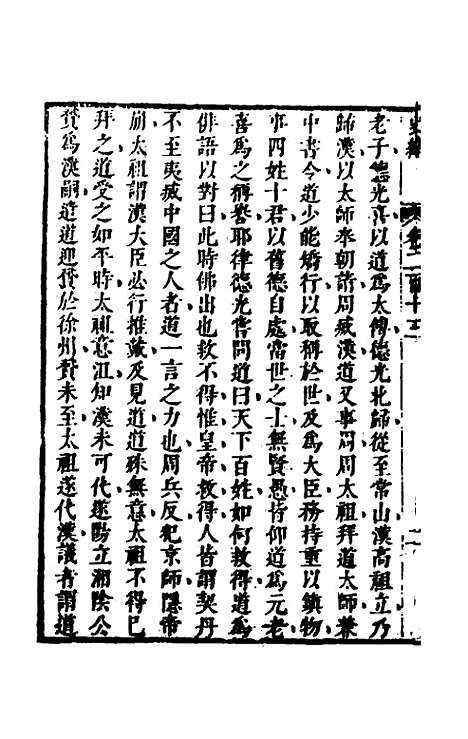 老子德光喜以道爲太傅德光北歸從至常山漢高祖立乃
歸漢以太師奉朝請周滅漢道又事周周太祖拜道太師兼
中書令道少能矯行以取稱於世及爲大臣務持重以鎮物
事四姓十君以舊德自處當世之士無賢愚皆仰道爲元老
喜爲之稱譽耶律德光嘗問道曰天下百姓如何救得道爲
俳語以對曰此時佛出也救不得惟皇帝救得人皆謂契丹
不至夷滅中國之人者道一言之力也周兵反犯京師隱帝
崩太祖謂漢大臣必行推戴及見道道殊無意太祖不得已
拜之道受之如平時太祖意沮知漢未可代遂陽立湘陰公
贇爲漢嗣遣道迎贇於徐州贇未至太祖遂代漢議者謂道